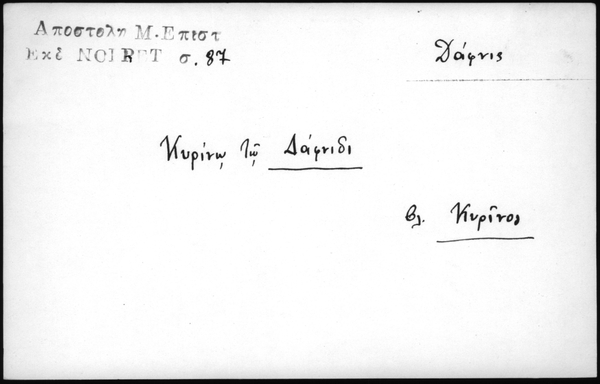 Αποστολη Μ. Επιστ
Εκδ NOIRET σ. 87
Δάφνις
Κυρίνῳ τῷ Δάφνιδι
βλ. Κυρῖνος